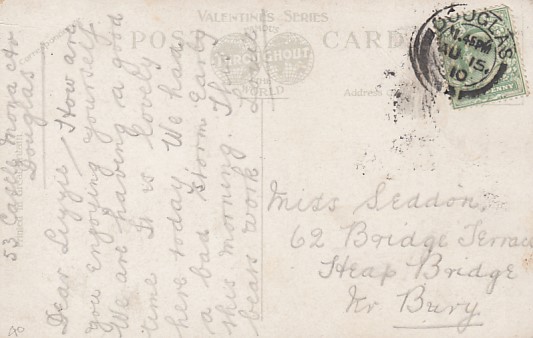 VALENTINE'S SERIES
POST CARD
FAMOUS
THROUGHOUT
THE
WORLD
DOUGLAS
11.45PM
AU 15
10
PENNY
53 Castle Mona Av
Douglas
Dear Lizzie, How are
you enjoying yourself
We are having a good
time It is lovely
here today We had
a bad storm early
this morning. The
bears work
Miss Seddon,
62 Bridge Terrace
Heap Bridge
Nr Bury